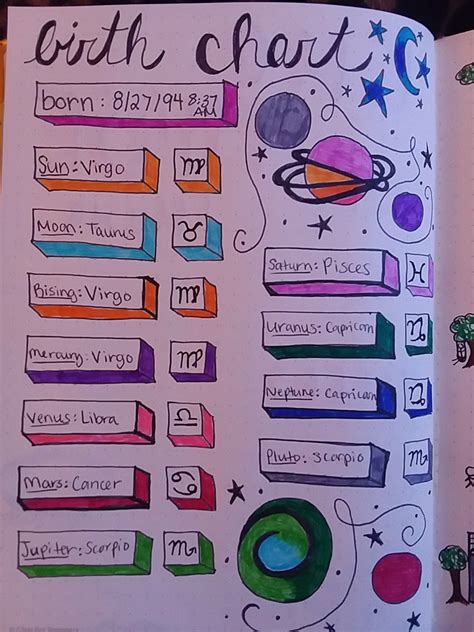 birth chart
born: 8/27/94 8:37 AM
Sun: Virgo
Moon: Taurus
Rising: Virgo
mercury: Virgo
Venus: Libra
Mars: Cancer
Jupiter: Scorpio
Saturn: Pisces
Uranus: Capricorn
Neptune: Capricorn
Pluto: Scorpio